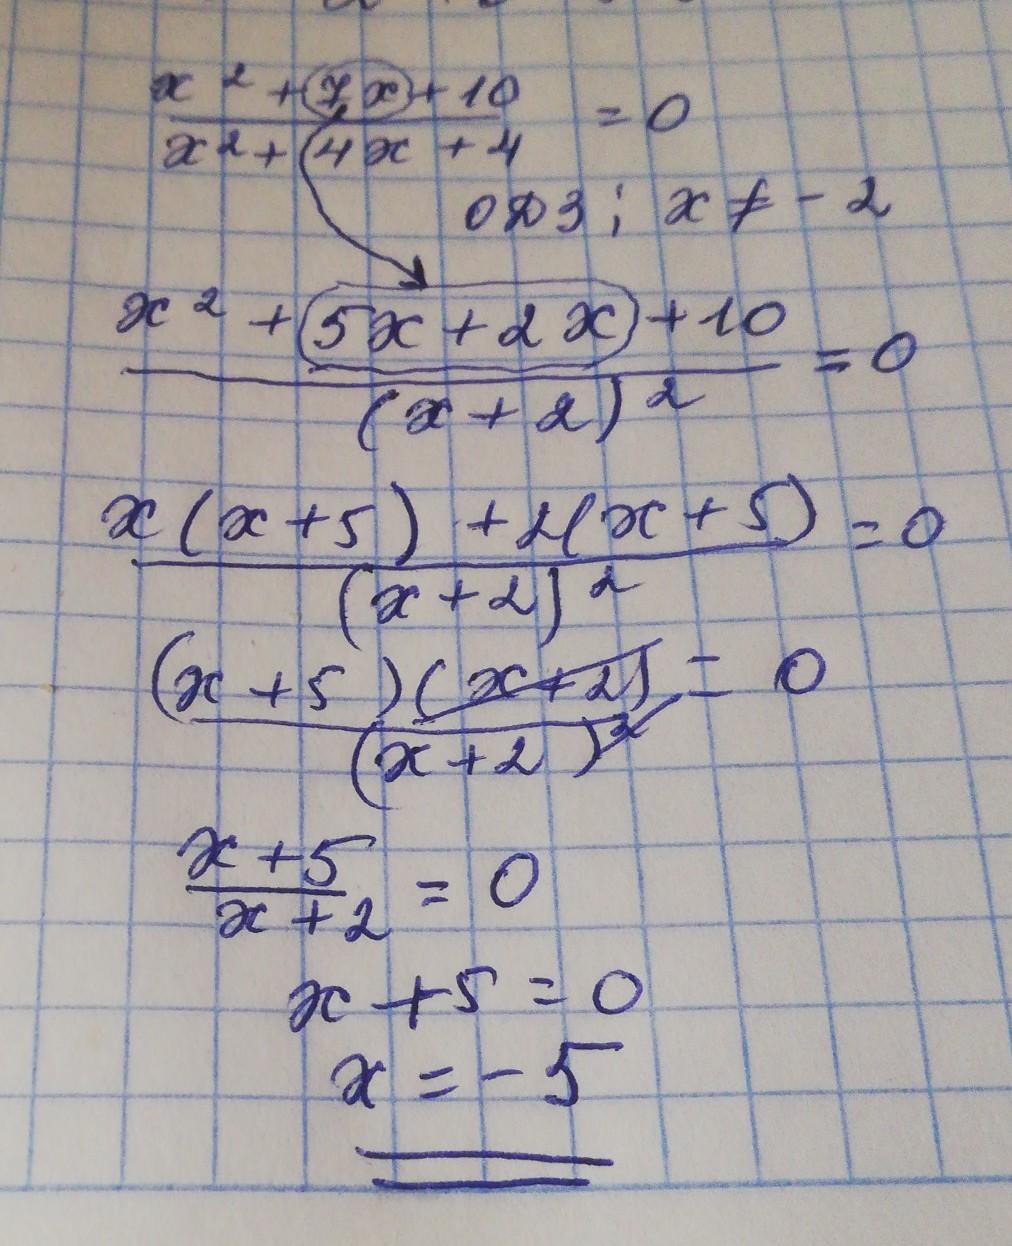 x² + 7x + 10 / x² + 4x + 4 = 0
ОДЗ; x ≠ - 2
x² + 5x + 2x + 10 / (x + 2)² = 0
x(x + 5) + 2(x + 5) / (x + 2)² = 0
(x + 5)(x + 2) / (x + 2)² = 0
x + 5 / x + 2 = 0
x + 5 = 0
x = - 5